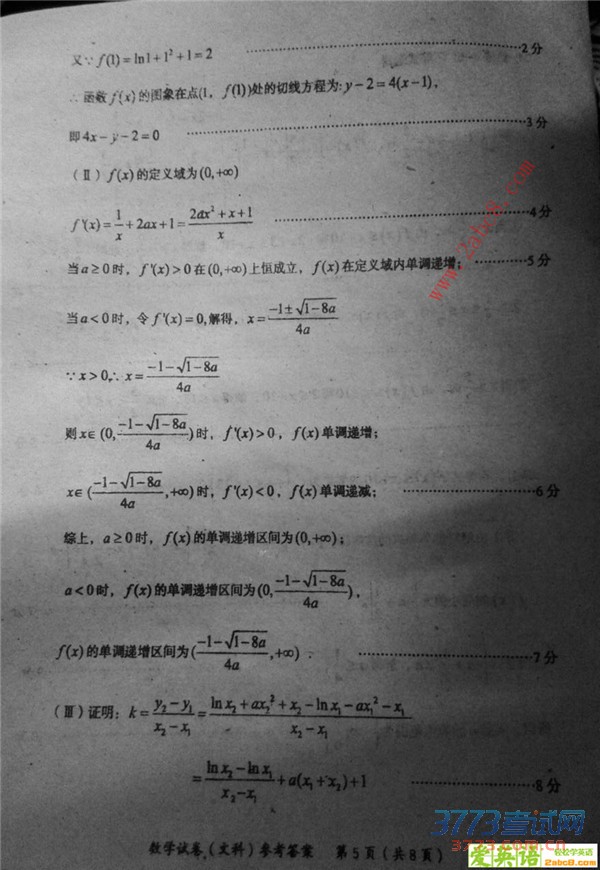 又∵ f(1)=ln1+1²+1=2 ……………2分
∴函数f(x)的图象在点(1, f(1))处的切线方程为:y-2=4(x-1),
即4x-y-2=0 ……………3分
(Ⅱ) f(x)的定义域为(0,+∞)
f'(x)=1/x+2ax+1=(2ax²+x+1)/x ……………4分
当a≥0时, f'(x)>0在(0,+∞)上恒成立, f(x)在定义域内单调递增; ……………5分
当a<0时,令f'(x)=0,解得, x=(-1±√(1-8a))/(4a)
∵x>0,∴ x=(-1-√(1-8a))/(4a)
则x∈(0,(-1-√(1-8a))/(4a))时, f'(x)>0, f(x)单调递增;
x∈((-1-√(1-8a))/(4a),+∞)时, f'(x)<0, f(x)单调递减; ……………6分
综上, a≥0时, f(x)的单调递增区间为(0,+∞);
a<0时, f(x)的单调递增区间为(0,(-1-√(1-8a))/(4a)),
f(x)的单调递增区间为((-1-√(1-8a))/(4a),+∞). ……………7分
(Ⅲ)证明: k=(y₂-y₁)/(x₂-x₁)=(lnx₂+ax₂²+x₂-lnx₁-ax₁²-x₁)/(x₂-x₁)
=(lnx₂-lnx₁)/(x₂-x₁)+a(x₁+x₂)+1 ……………8分
数学试卷(文科)参考答案 第5页(共8页)
www.2abc8.com
3773考试网
3773.com.cn
爱英语 轻松学英语
2abc8.com